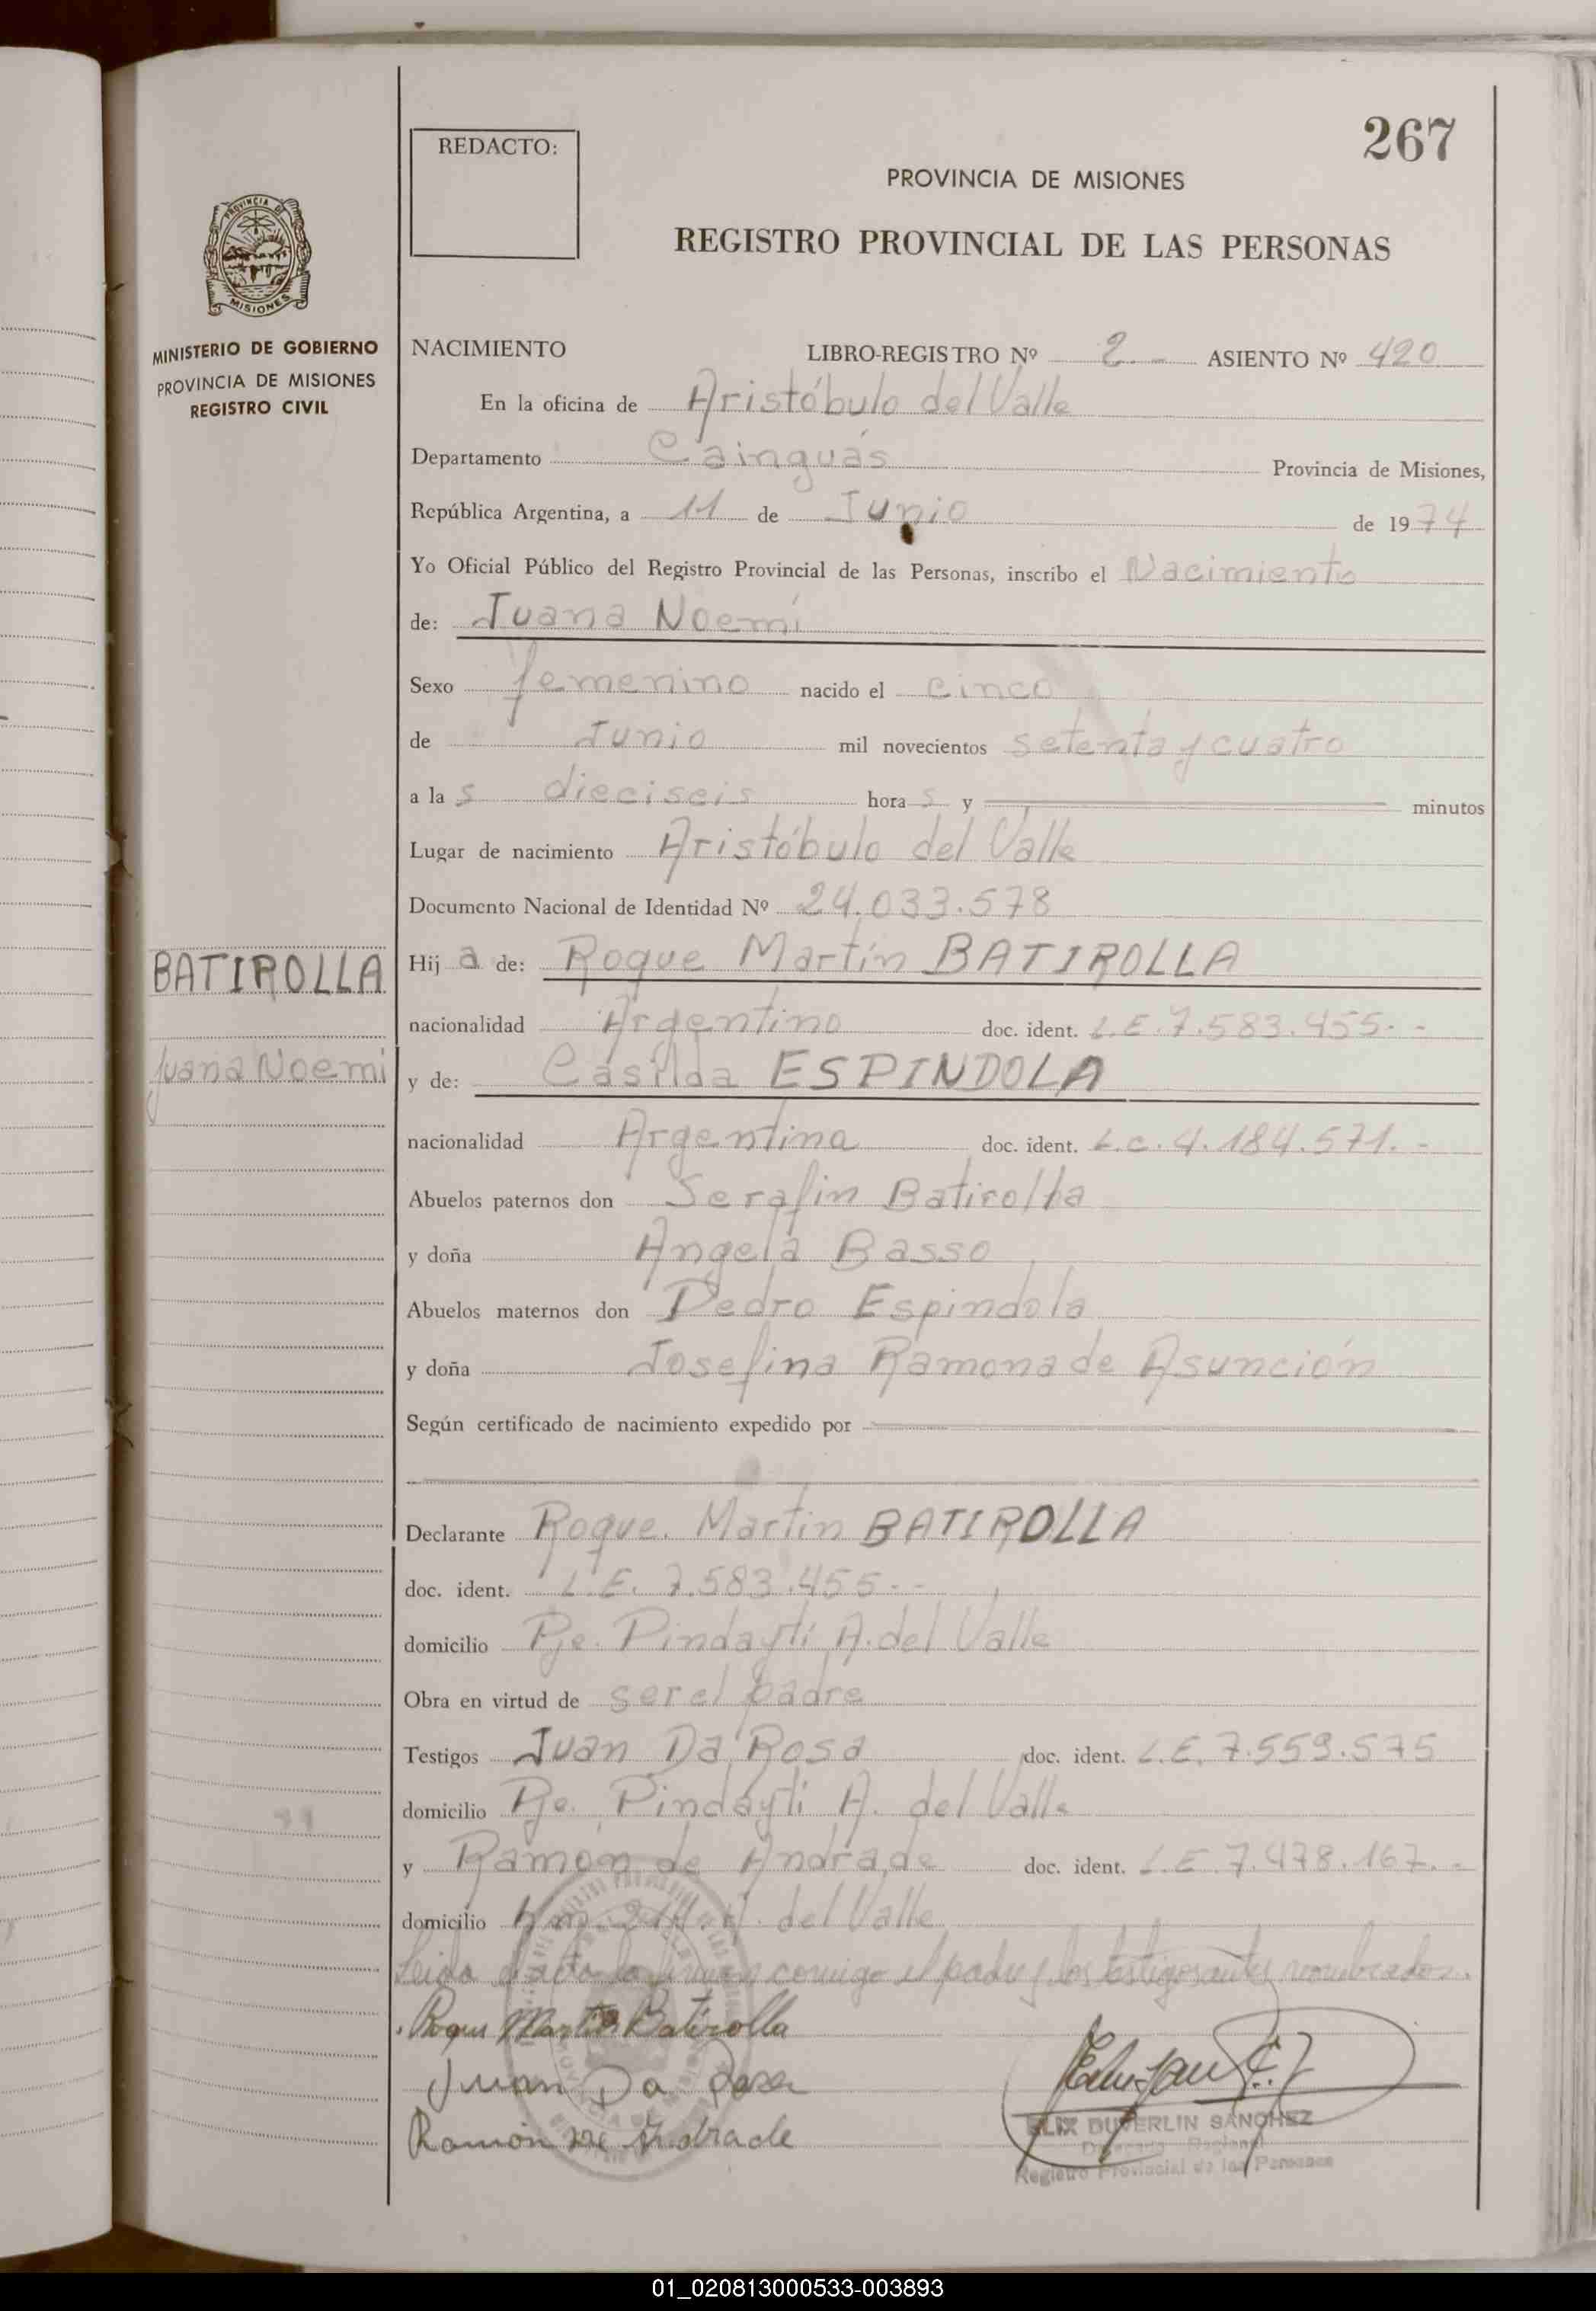 267
REDACTO:
PROVINCIA DE MISIONES
REGISTRO PROVINCIAL DE LAS PERSONAS
PROVINCIA DE
MISIONES
MINISTERIO DE GOBIERNO
PROVINCIA DE MISIONES
REGISTRO CIVIL
NACIMIENTO LIBRO-REGISTRO Nº 2.- ASIENTO Nº 420
En la oficina de Aristóbulo del Valle
Departamento Cainguás Provincia de Misiones,
República Argentina, a 11 de Junio de 1974
Yo Oficial Público del Registro Provincial de las Personas, inscribo el Nacimiento
de: Juana Noemí
Sexo femenino nacido el cinco
de Junio mil novecientos setenta y cuatro
a las dieciseis horas y minutos
Lugar de nacimiento Aristóbulo del Valle
Documento Nacional de Identidad Nº 24.033.578
BATIROLLA
Juana Noemi
Hija de: Roque Martín BATIROLLA
nacionalidad Argentino doc. ident. L.E. 7.583.455.--
y de: Casilda ESPINDOLA
nacionalidad Argentina doc. ident. L.C. 4.184.571.-
Abuelos paternos don Serafin Batirolla
y doña Angela Basso
Abuelos maternos don Pedro Espindola
y doña Josefina Ramona de Asunción
Según certificado de nacimiento expedido por
Declarante Roque Martín BATIROLLA
doc. ident. L.E. 7.583.455.--
domicilio Pje. Pindaytí A. del Valle
Obra en virtud de ser el padre
Testigos Juan Da Rosa doc. ident. L.E. 7.559.575
domicilio Pje. Pindaytí A. del Valle
y Ramón de Andrade doc. ident. L.E. 7.478.167.-
domicilio Km. A. del Valle
Leida el acta la firman conmigo el padre y los testigos antes nombrados.
Roque Martin Batirolla
Juan Da Rosa
Ramon de Andrade
ELIX DUVERLIN SANCHEZ
Delegado Regional
Registro Provincial de las Personas
01_020813000533-003893